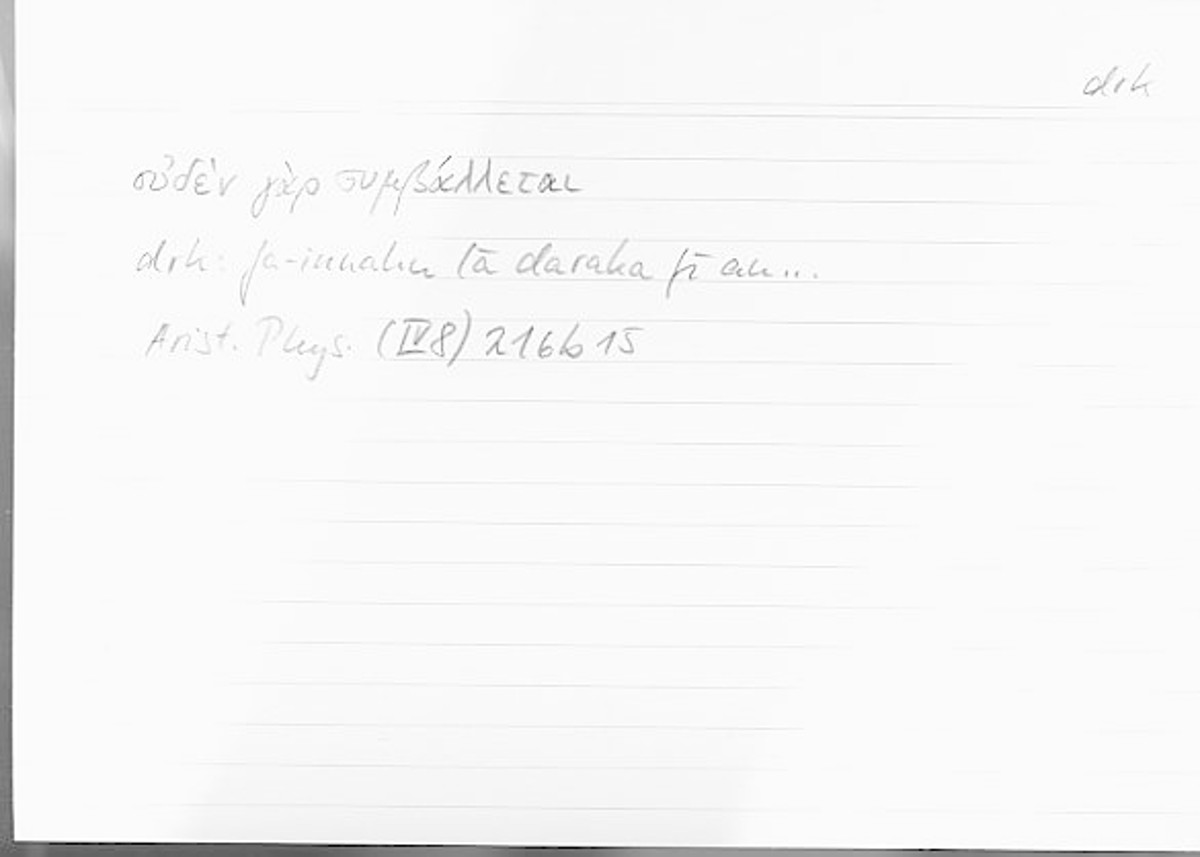 drk
οὐδὲν γὰρ συμβάλλεται
drk: fa-innahu lā daraka fī an...
Arist. Phys. (IV 8) 216b15